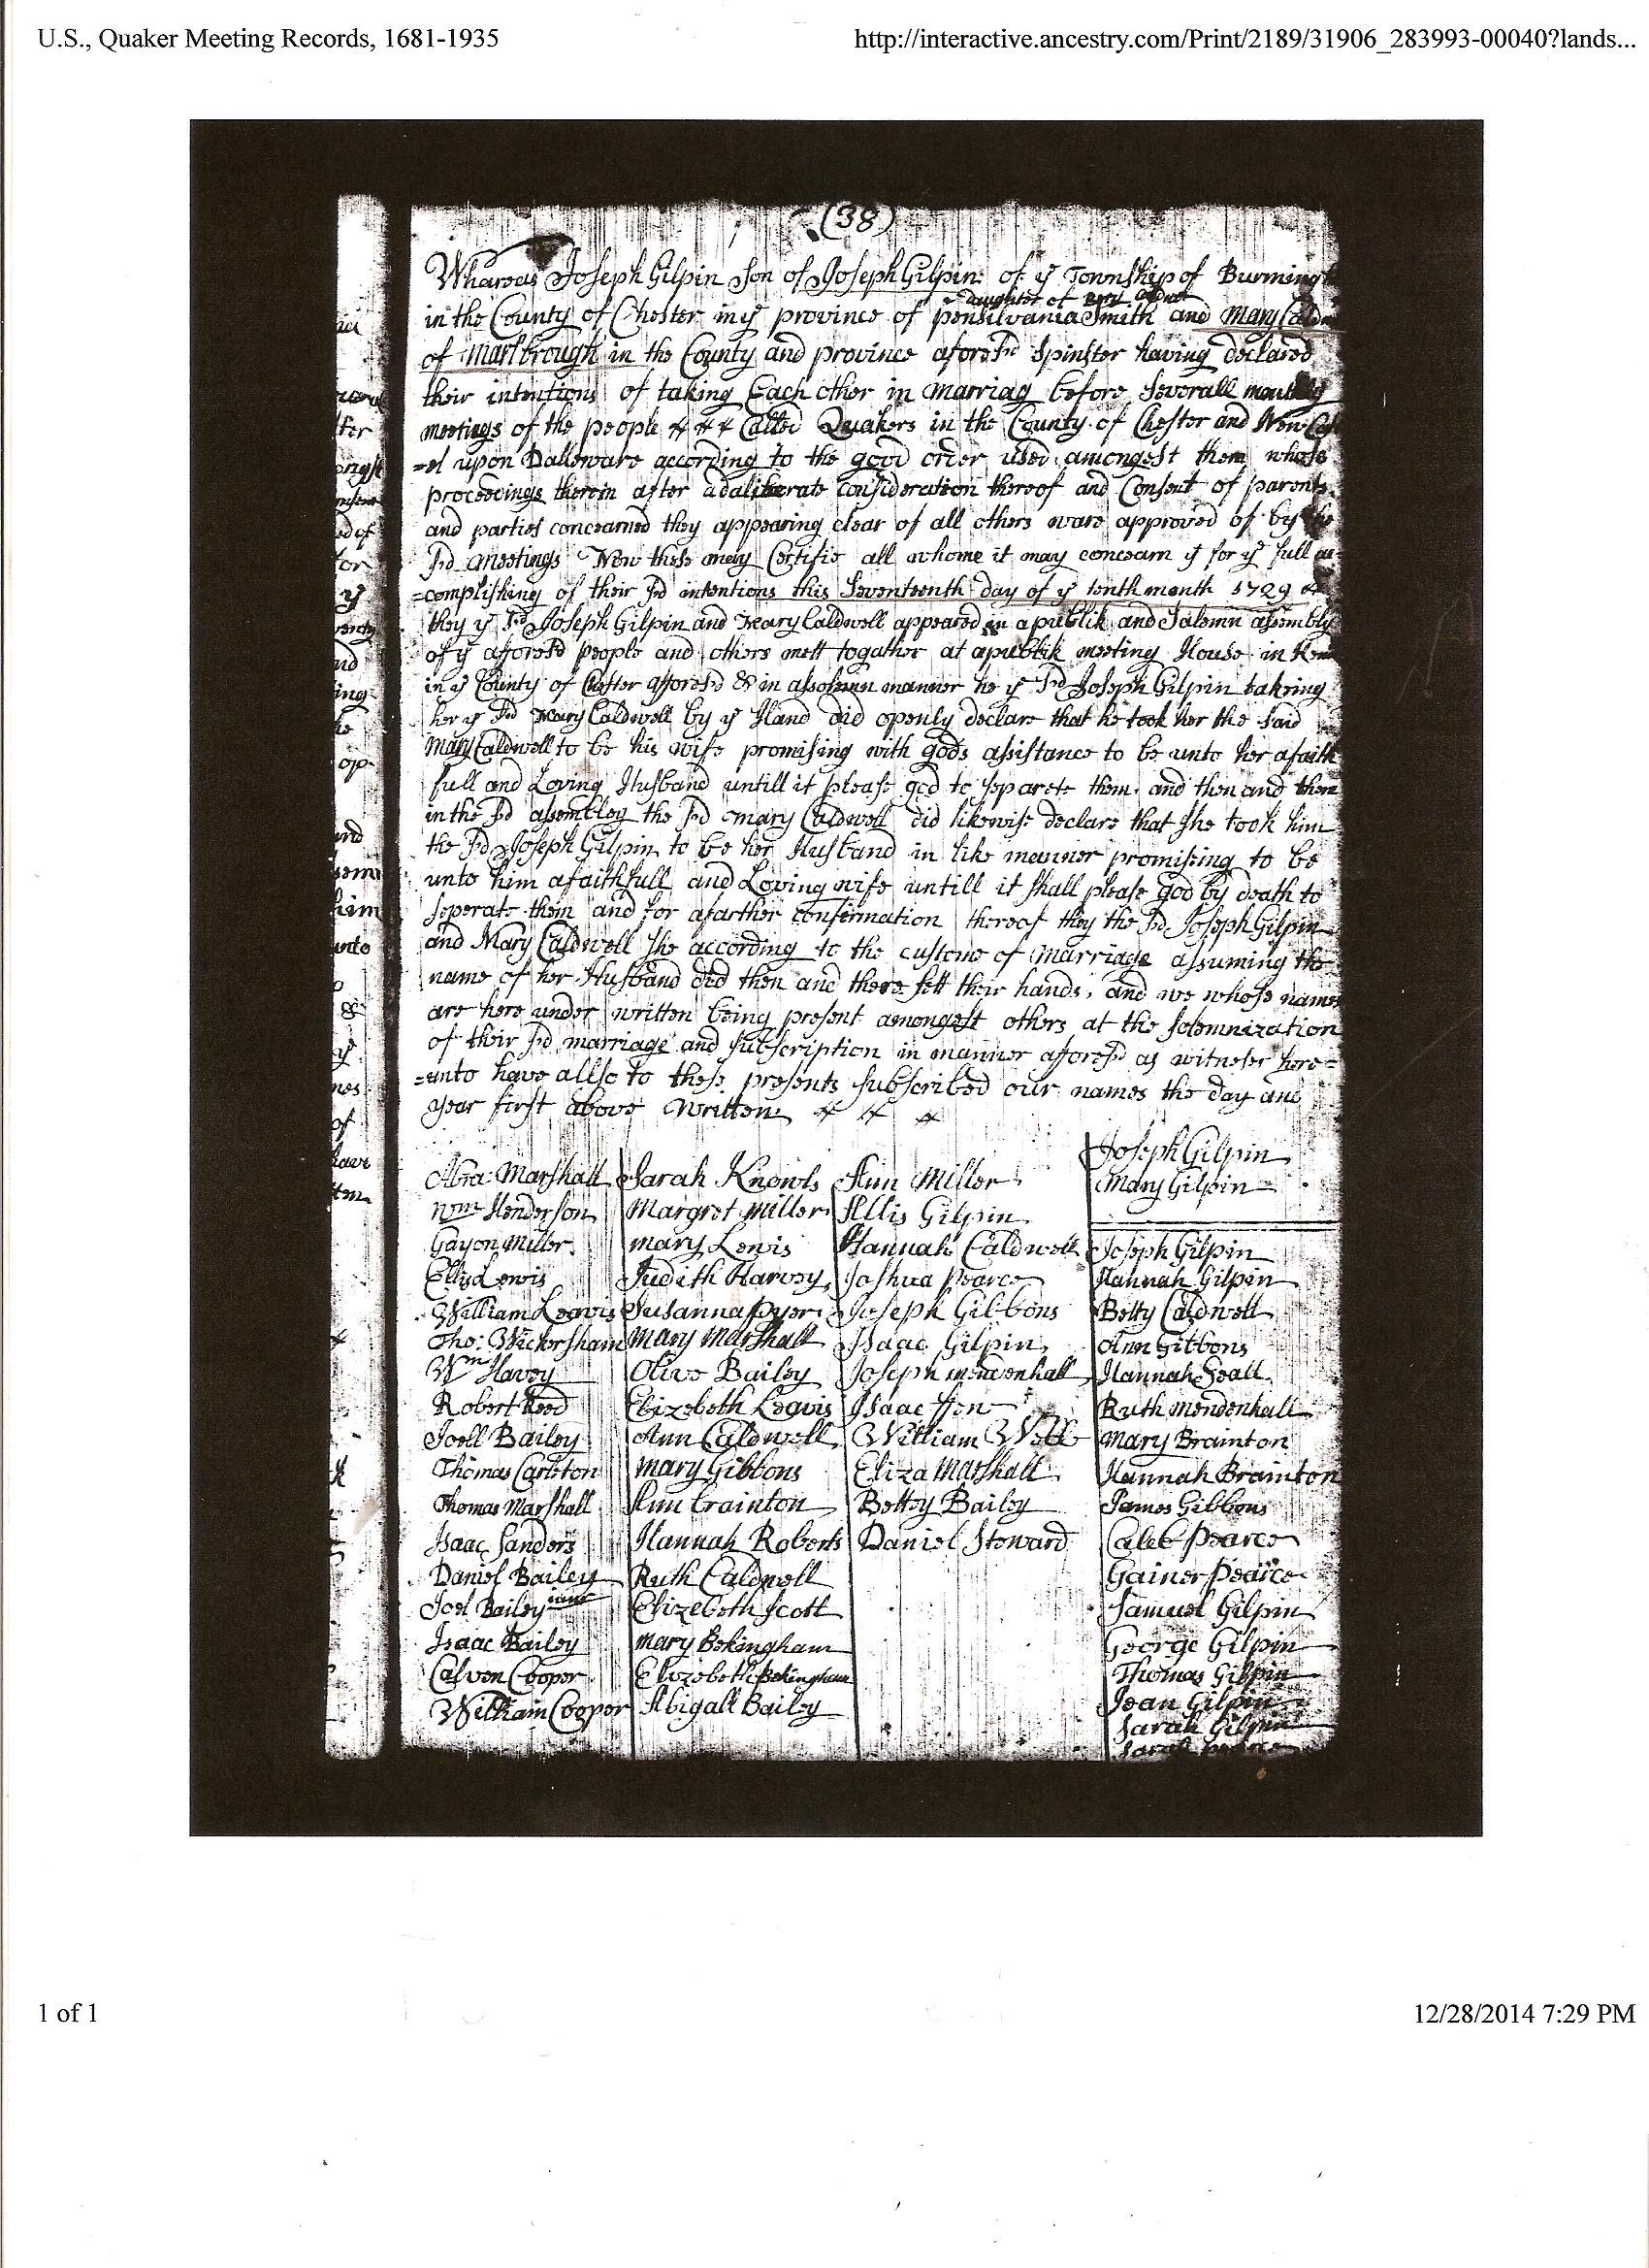 U.S., Quaker Meeting Records, 1681-1935
http://interactive.ancestry.com/Print/2189/31906_283993-00040?lands...
(38)
Whareas Joseph Gilpin Son of Joseph Gilpin of yͤ Township of Burming
daughter of Caldwell
in the County of Chester in yͤ province of pensilvania Smith and Mary Caldw
of Marlbrough in the County and province aforesᵈ Spinster having declared
their intentions of taking Each other in Marriag before Severall monthly
meetings of the people Called Quakers in the County of Chester and New Cast
=el upon Dalleware according to the good order used amongest them whose
proceedings therein after a daliberate Consideration thereof and Consent of parents
and parties concearned they appearing clear of all others ware approved of by the
sᵈ meetings Now these may Certifie all whome it may concearn yͭ for yͤ full ac
=complishing of their sᵈ intentions this Seventeenth day of yͤ tenth month 1729
they yͤ sᵈ Joseph Gilpin and Mary Caldwell appeared in a publik and Salemn assembly
of yͤ afforesᵈ people and others mett togather at a publik meeting House in Ken
in yͤ County of Chester afforesᵈ & in a solemn manner he yͤ sᵈ Joseph Gilpin taking
her yͤ sᵈ Mary Caldwell by yͤ Hand did openly declare that he took her the said
Mary Caldwell to be his wife promising with gods assistance to be unto her a faith
full and Loving Husband untill it please god to separete them. and then and there
in the sᵈ assembley the sᵈ mary Caldwell did likewise declare that she took him
the sᵈ Joseph Gilpin to be her Husband in like manner promising to be
unto him a faithfull and Loving wife untill it shall please god by death to
seperate them and for a farther confirmation thereof they the sᵈ Joseph Gilpin
and Mary Caldwell she according to the custome of marriage assuming the
name of her Husband did then and there sett their hands, and we whose names
are here under written being present amongest others at the solemnization
of their sᵈ marriage and subscription in manner afforesᵈ as witneses here=
=unto have allso to these presents subscribed our names the day and
year first above written
Joseph Gilpin
Mary Gilpin
Abra: Marshall Sarah Knowls Ann Miller
Wm Henderson Margret Miller Allis Gilpin
Gayon Miller mary Lewis Hannah Caldwell Joseph Gilpin
Ellis Lewis Judith Harvey Joshua Pearce Hannah Gilpin
William Leavis Susanna pyer Joseph Gibbons Betty Caldwell
Tho: Wickersham Mary Marshall Isaac Gilpin Ann Gibbons
Wm Harvey Olive Bailey Joseph mendenhall Hannah Seall
Robert Reed Elizebeth Leavis Isaac Ruth Mendenhall
Joell Bailey Ann Caldwell William Webb Mary Brainton
Thomas Carleton Mary Gibbons Eliza Marshall Hannah Brainton
Thomas Marshall Ann brainton Bettey Bailey James Gibbons
Isaac Sanders Hannah Roberts Daniel Steward Caleb Pearce
Daniel Bailey Ruth Caldwell Gainer Pearce
Joel Bailey iunr Elizebeth Scott Samuel Gilpin
Isaac Bailey Mary Bekingham George Gilpin
Calven Cooper Elizebeth Bekingham Thomas Gilpin
William Cooper Abigall Bailey Jean Gilpin
Sarah Gilpin
Sarah
1 of 1
12/28/2014 7:29 PM